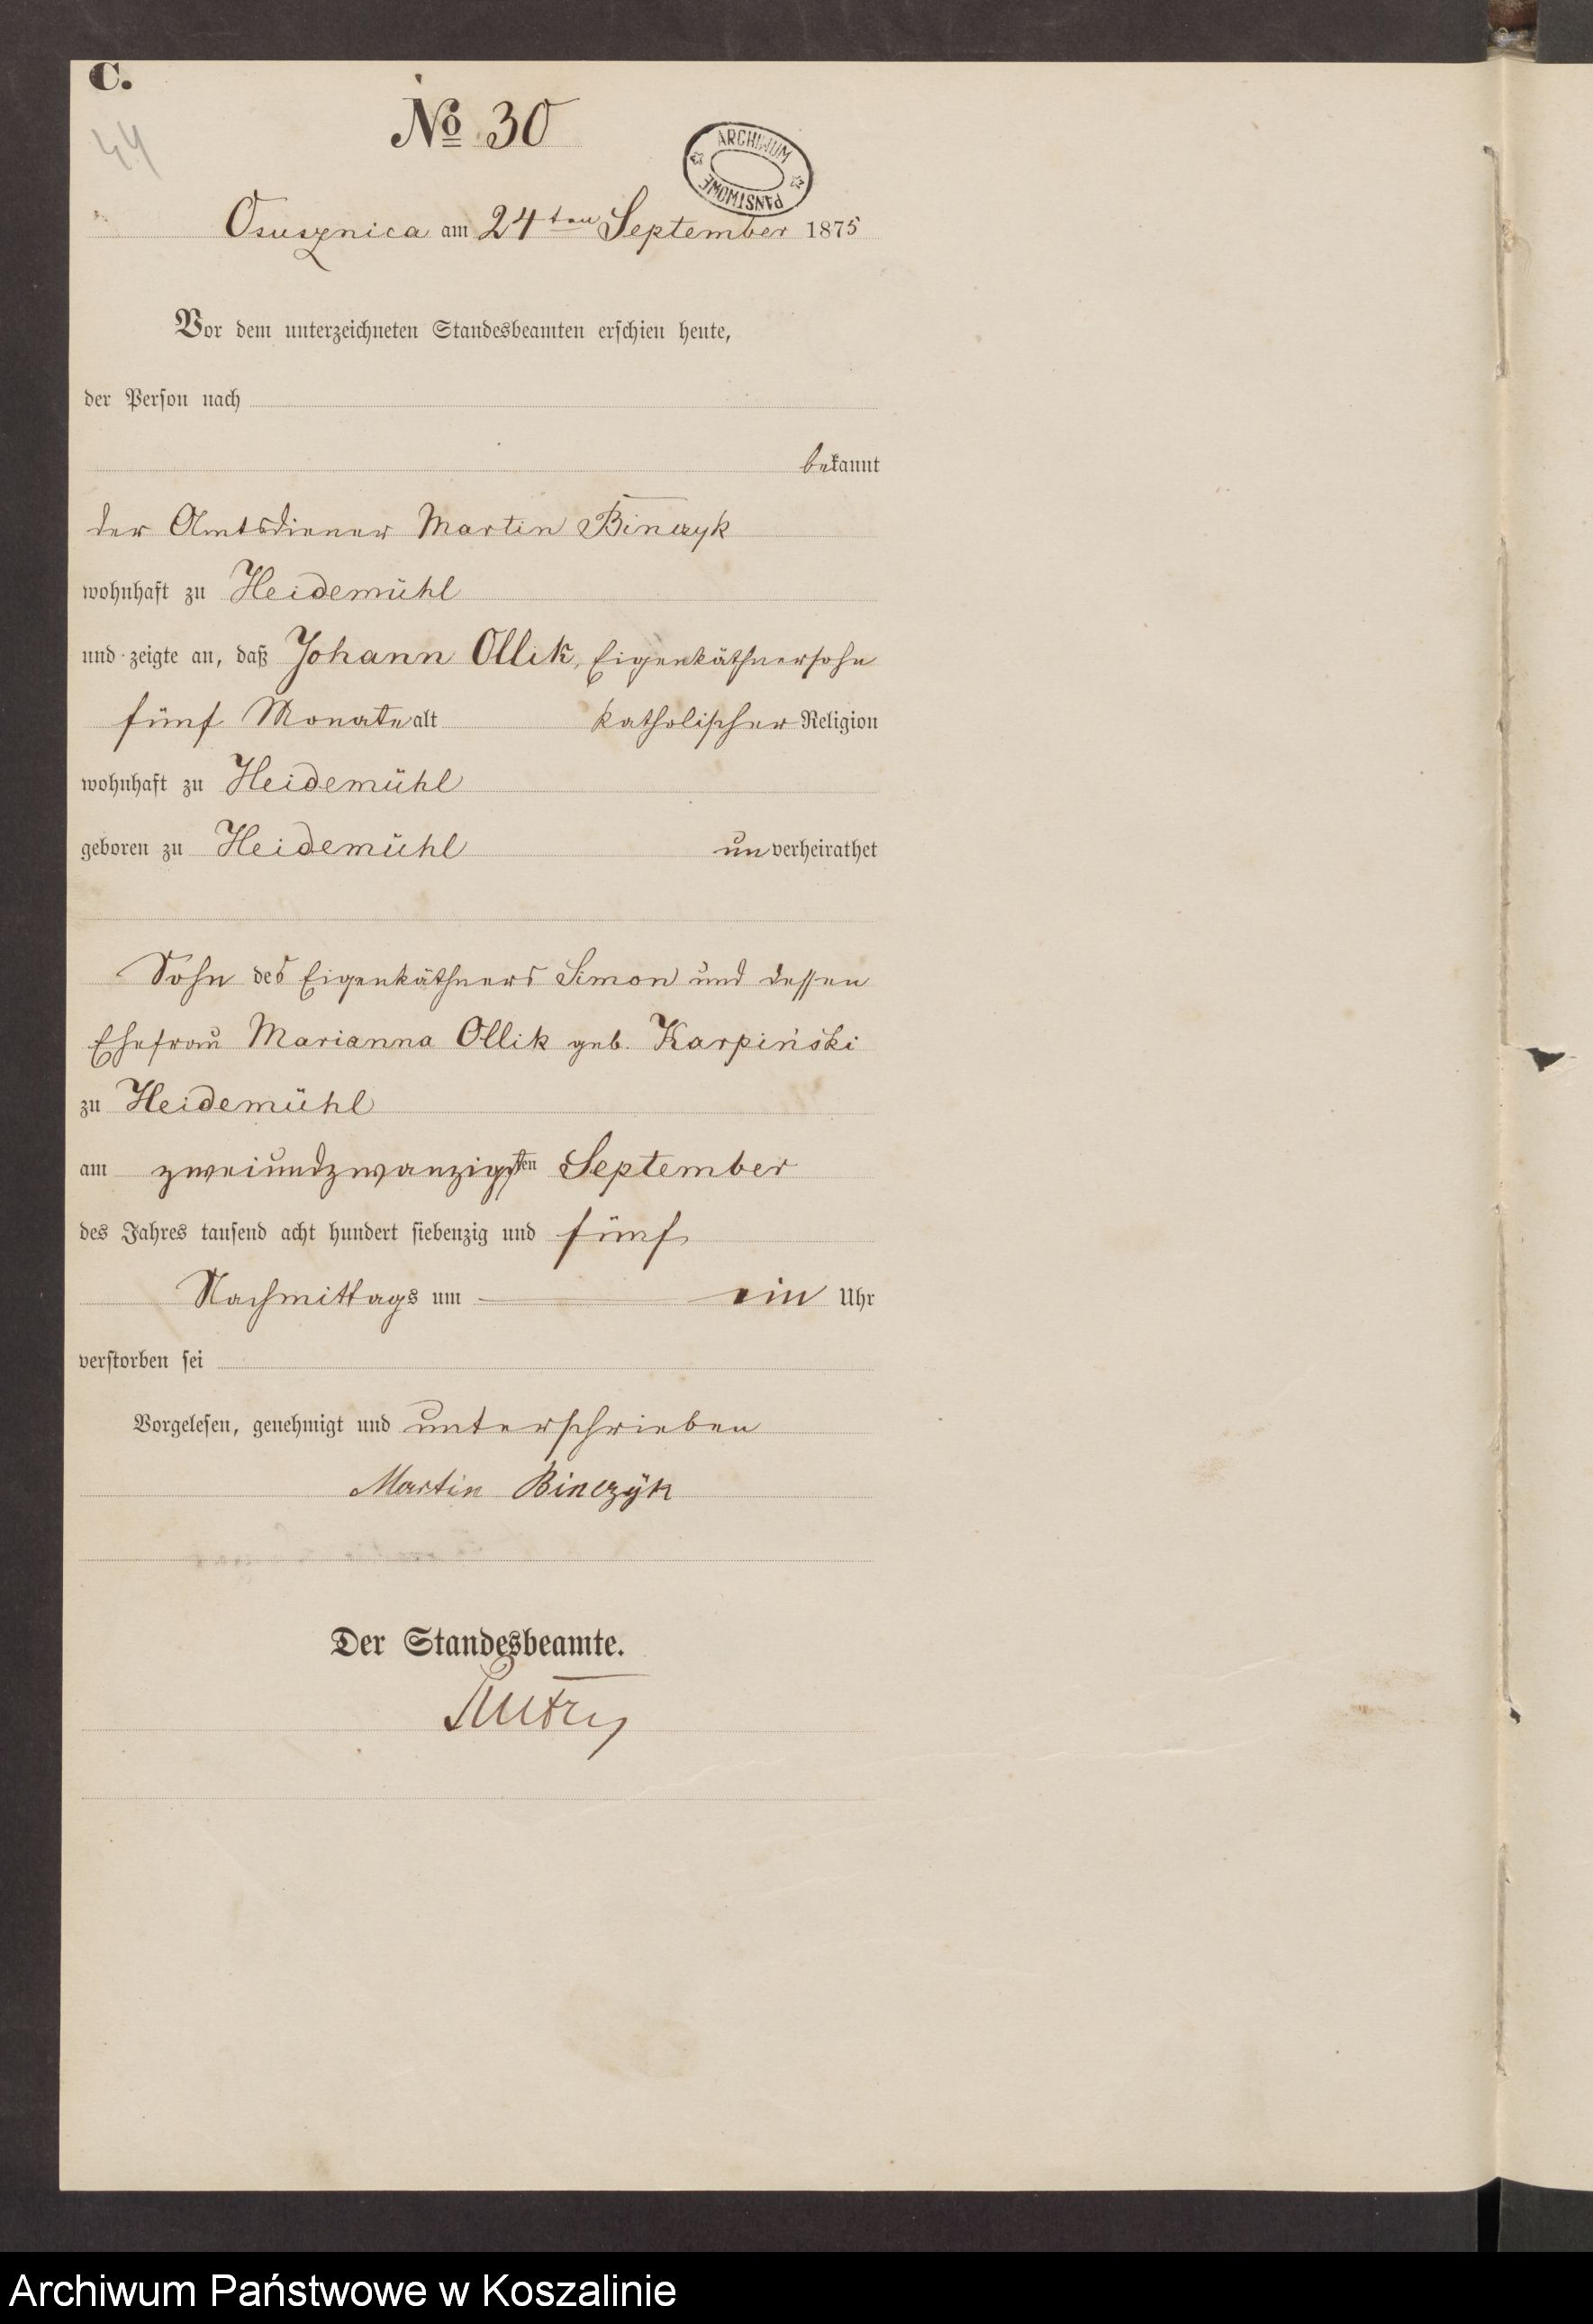 C.
44
No 30
ARCHIWUM PAŃSTWOWE
Osusznica am 24ten September 1875
Vor dem unterzeichneten Standesbeamten erschien heute,
der Person nach
bekannt
der Amtsdiener Martin Binczyk
wohnhaft zu Heidemühl
und zeigte an, daß Johann Ollik, Eigenkäthnersohn
fünf Monate alt katholischer Religion
wohnhaft zu Heidemühl
geboren zu Heidemühl unverheirathet
Sohn des Eigenkäthners Simon und dessen
Ehefrau Marianna Ollik geb. Karpiński
zu Heidemühl
am zweiundzwanzigsten September
des Jahres tausend acht hundert siebenzig und fünf
Nachmittags um ein Uhr
verstorben sei
Vorgelesen, genehmigt und unterschrieben
Martin Binczÿk
Der Standesbeamte.
Archiwum Państwowe w Koszalinie